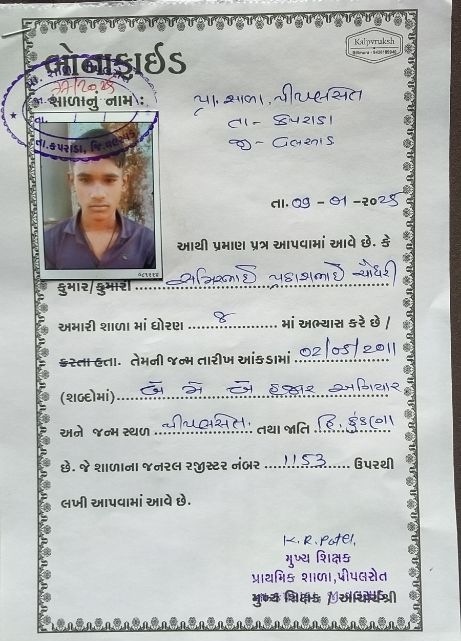 Kalpvruksh
બોનાફાઈડ
શાળાનું નામ : પ્રા. શાળા, પીપલસેત
તા - કપરાડા
જી - વલસાડ
તા. કપરાડા, જિ. વલસાડ
તા. 09 - 01 - ૨૦૨૫
આથી પ્રમાણ પત્ર આપવામાં આવે છે. કે
કુમાર/કુમારી ચૌધરી
અમારી શાળા માં ધોરણ ૪ માં અભ્યાસ કરે છે /
કરતા હતા. તેમની જન્મ તારીખ આંકડામાં 02/05/2011
(શબ્દોમાં) બે મે બે હજાર અગિયાર
અને જન્મ સ્થળ પીપલસેત તથા જાતિ હિ. કુંકણા
છે. જે શાળાના જનરલ રજીસ્ટર નંબર 1153 ઉપરથી
લખી આપવામાં આવે છે.
K.R.Patel,
મુખ્ય શિક્ષક
પ્રાથમિક શાળા, પીપલસેત
મુખ્ય શિક્ષક / આચાર્યશ્રી